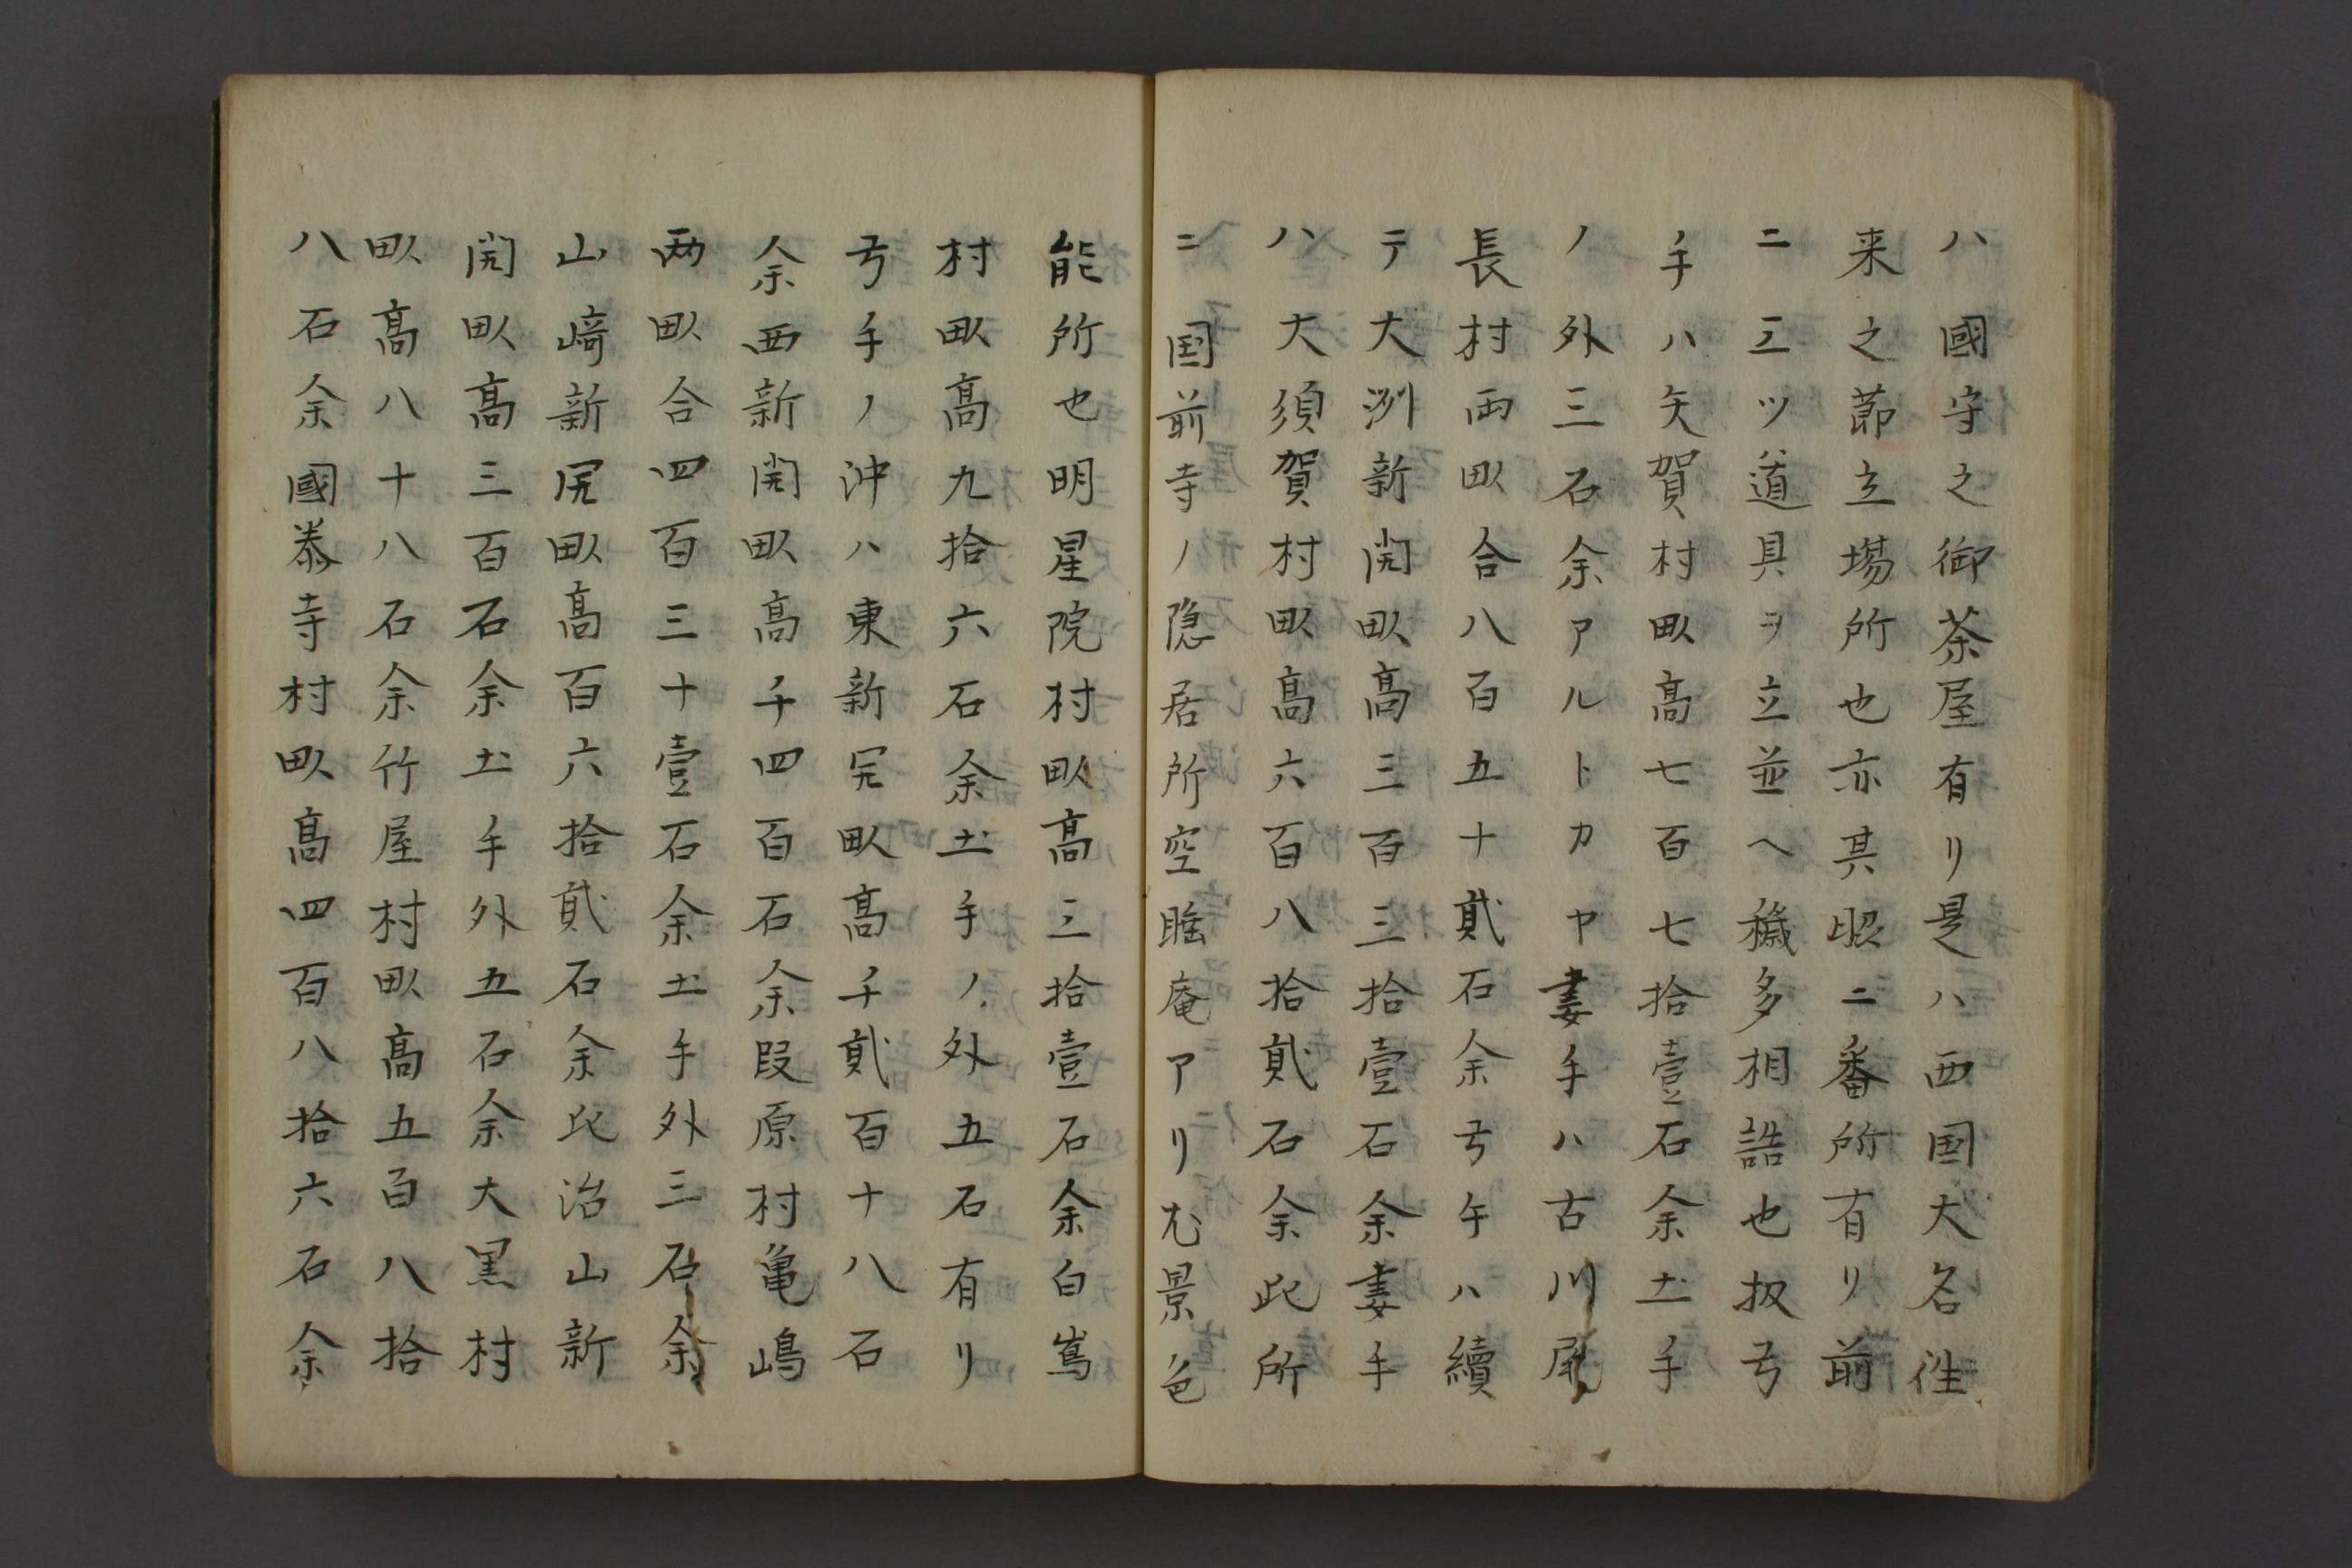 ハ國守之御茶屋有リ是ハ西国大名徃
来之節立場所也亦其眤ニ番所有リ前
ニ三ツ道具ヲ立並ヘ穢多相詰也扨弓
手ハ矢賀村畝高七百七拾壹石余土手
ノ外三石余アルトカヤ妻手ハ古川尾
長村両畝合八百五十貳石余弓午ハ續
テ大洲新開畝高三百三拾壹石余妻手
ハ大須賀村畝高六百八拾貳石余此所
ニ国前寺ノ隠居所空眠庵アリ尤景色
能所也明星院村畝高三拾壹石余白嶌
村畝高九拾六石余土手ノ外五石有リ
弓手ノ沖ハ東新開畝高千貳百十八石
余西新開畝高千四百石余段原村亀嶋
両畝合四百三十壹石余土手外三石余
山﨑新開畝高百六拾貳石余比治山新
開畝高三百石余土手外五石余大黒村
畝高八十八石余竹屋村畝高五百八拾
八石余國泰寺村畝高四百八拾六石余